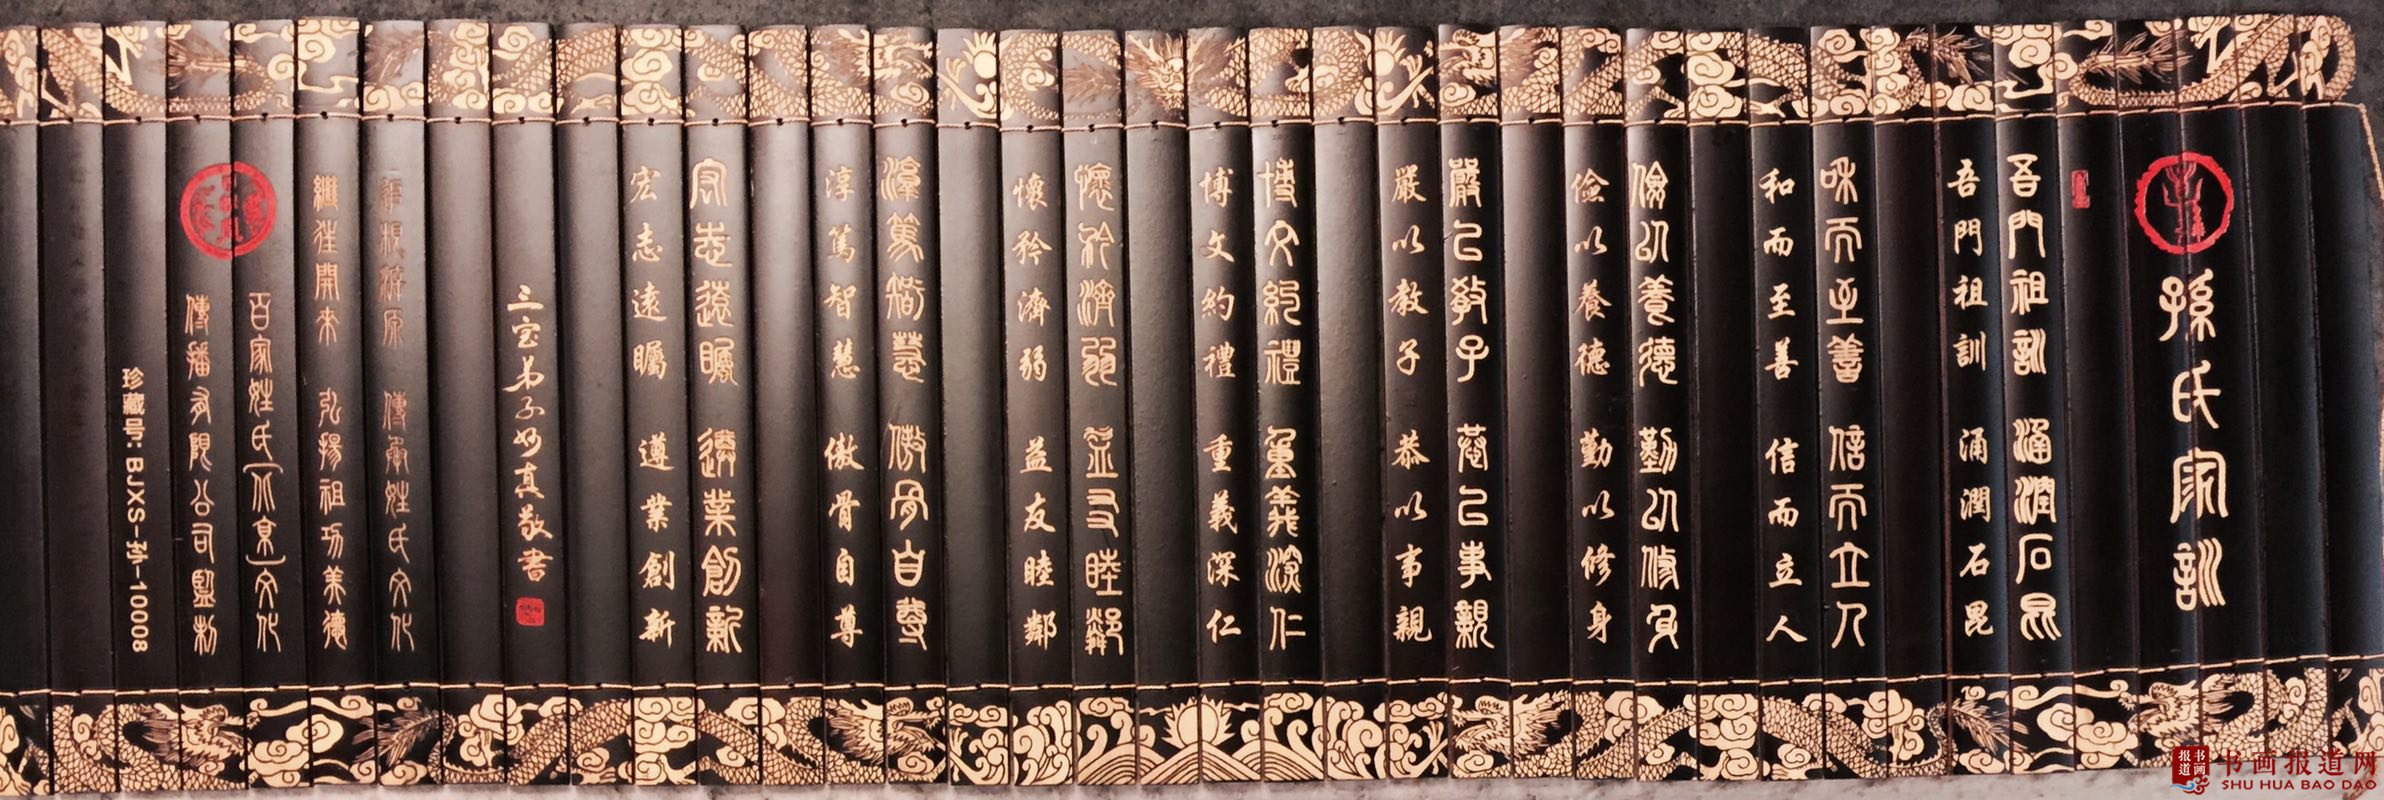 孫氏家訓
吾門祖訓 涌潤石昆
吾門祖訓 涌潤石昆
和而至善 信而立人
和而至善 信而立人
儉以養德 勤以修身
儉以養德 勤以修身
嚴以教子 恭以事親
嚴以教子 恭以事親
博文約禮 重義深仁
博文約禮 重義深仁
懷矜濟弱 益友睦鄰
懷矜濟弱 益友睦鄰
淳篤智慧 傲骨自尊
淳篤智慧 傲骨自尊
宏志遠矚 遵業創新
宏志遠矚 遵業創新
三宝弟子妙真敬書
追根溯原 傳承姓氏文化
繼往開来 弘揚祖功美德
百家姓氏(北京)文化
傳播有限公司監制
珍藏号:BJXS-孙-10008
报道
书画
书画报道网
SHU HUA BAO DAO